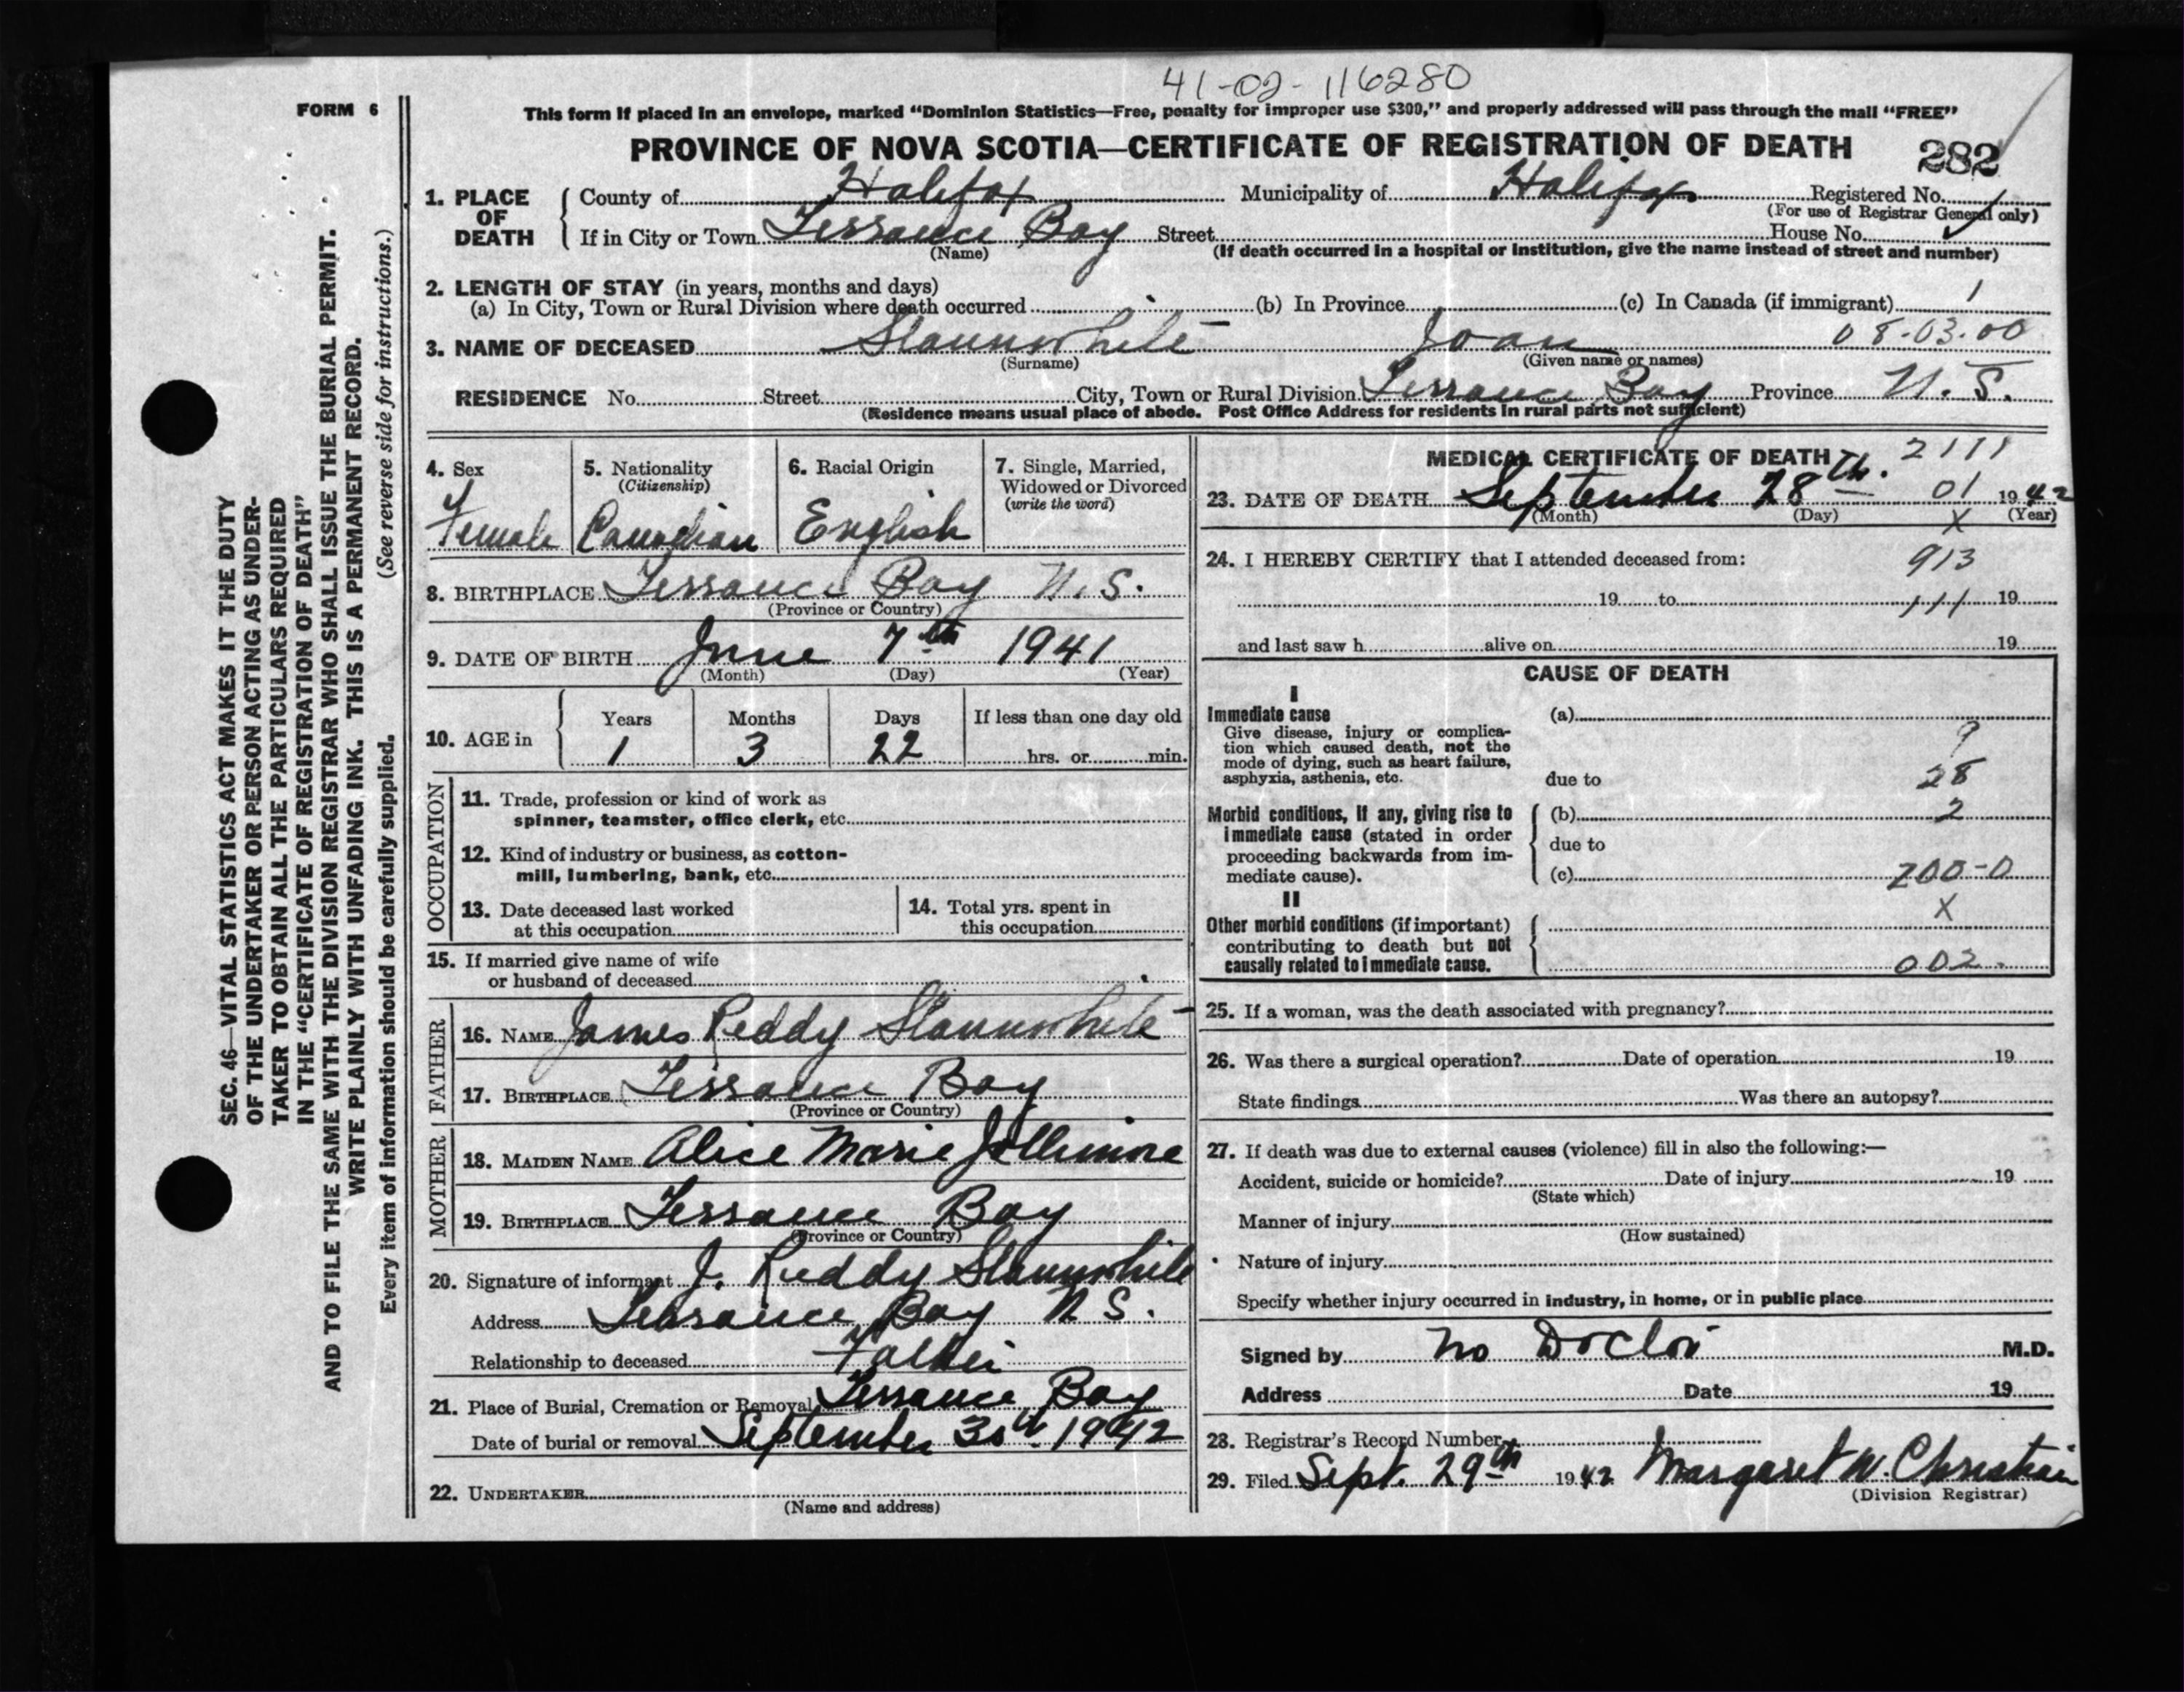 41-02-116280
FORM 6
This form if placed in an envelope, marked “Dominion Statistics—Free, penalty for improper use $300,” and properly addressed will pass through the mail “FREE”
PROVINCE OF NOVA SCOTIA—CERTIFICATE OF REGISTRATION OF DEATH 282
1. PLACE OF DEATH County of Halifax Municipality of Halifax Registered No.
(For use of Registrar General only)
If in City or Town Terrance Bay Street House No.
(Name) (If death occurred in a hospital or institution, give the name instead of street and number)
2. LENGTH OF STAY (in years, months and days)
(a) In City, Town or Rural Division where death occurred (b) In Province (c) In Canada (if immigrant) 1
3. NAME OF DECEASED Slaunwhite Joan 08-03-00
(Surname) (Given name or names)
RESIDENCE No. Street City, Town or Rural Division Terrance Bay Province N. S.
(Residence means usual place of abode. Post Office Address for residents in rural parts not sufficient)
4. Sex
Female
5. Nationality
(Citizenship)
Canadian
6. Racial Origin
English
7. Single, Married,
Widowed or Divorced
(write the word)
8. BIRTHPLACE Terrance Bay N. S.
(Province or Country)
9. DATE OF BIRTH June 7th 1941
(Month) (Day) (Year)
10. AGE in Years Months Days If less than one day old
1 3 22 hrs. or min.
OCCUPATION
11. Trade, profession or kind of work as
spinner, teamster, office clerk, etc.
12. Kind of industry or business, as cotton-
mill, lumbering, bank, etc.
13. Date deceased last worked
at this occupation
14. Total yrs. spent in
this occupation
15. If married give name of wife
or husband of deceased
FATHER
16. NAME James Reddy Slaunwhite
17. BIRTHPLACE Terrance Bay
(Province or Country)
MOTHER
18. MAIDEN NAME Alice Marie Jollimore
19. BIRTHPLACE Terrance Bay
(Province or Country)
20. Signature of informant J. Reddy Slaunwhite
Address Terrance Bay N S.
Relationship to deceased Father
21. Place of Burial, Cremation or Removal Terrance Bay
Date of burial or removal September 30th 1942
22. UNDERTAKER
(Name and address)
MEDICAL CERTIFICATE OF DEATH 2111
23. DATE OF DEATH September 28th. 01 1942
(Month) (Day) X (Year)
24. I HEREBY CERTIFY that I attended deceased from: 913
19 to 111 19
and last saw h alive on 19
CAUSE OF DEATH
I
Immediate cause (a)
Give disease, injury or complica-
tion which caused death, not the 9
mode of dying, such as heart failure,
asphyxia, asthenia, etc. due to 28
Morbid conditions, if any, giving rise to (b) 2
immediate cause (stated in order due to
proceeding backwards from im-
mediate cause). (c) 200-0
II X
Other morbid conditions (if important)
contributing to death but not
causally related to immediate cause. 002
25. If a woman, was the death associated with pregnancy?
26. Was there a surgical operation? Date of operation 19
State findings Was there an autopsy?
27. If death was due to external causes (violence) fill in also the following:—
Accident, suicide or homicide? Date of injury 19
(State which)
Manner of injury
(How sustained)
Nature of injury
Specify whether injury occurred in industry, in home, or in public place
Signed by No Doctor M.D.
Address Date 19
28. Registrar's Record Number
29. Filed Sept. 29th 1942 Margaret W. Christian
(Division Registrar)
SEC. 46—VITAL STATISTICS ACT MAKES IT THE DUTY
OF THE UNDERTAKER OR PERSON ACTING AS UNDER-
TAKER TO OBTAIN ALL THE PARTICULARS REQUIRED
IN THE “CERTIFICATE OF REGISTRATION OF DEATH”
AND TO FILE THE SAME WITH THE DIVISION REGISTRAR WHO SHALL ISSUE THE BURIAL PERMIT.
WRITE PLAINLY WITH UNFADING INK. THIS IS A PERMANENT RECORD.
Every item of information should be carefully supplied. (See reverse side for instructions.)